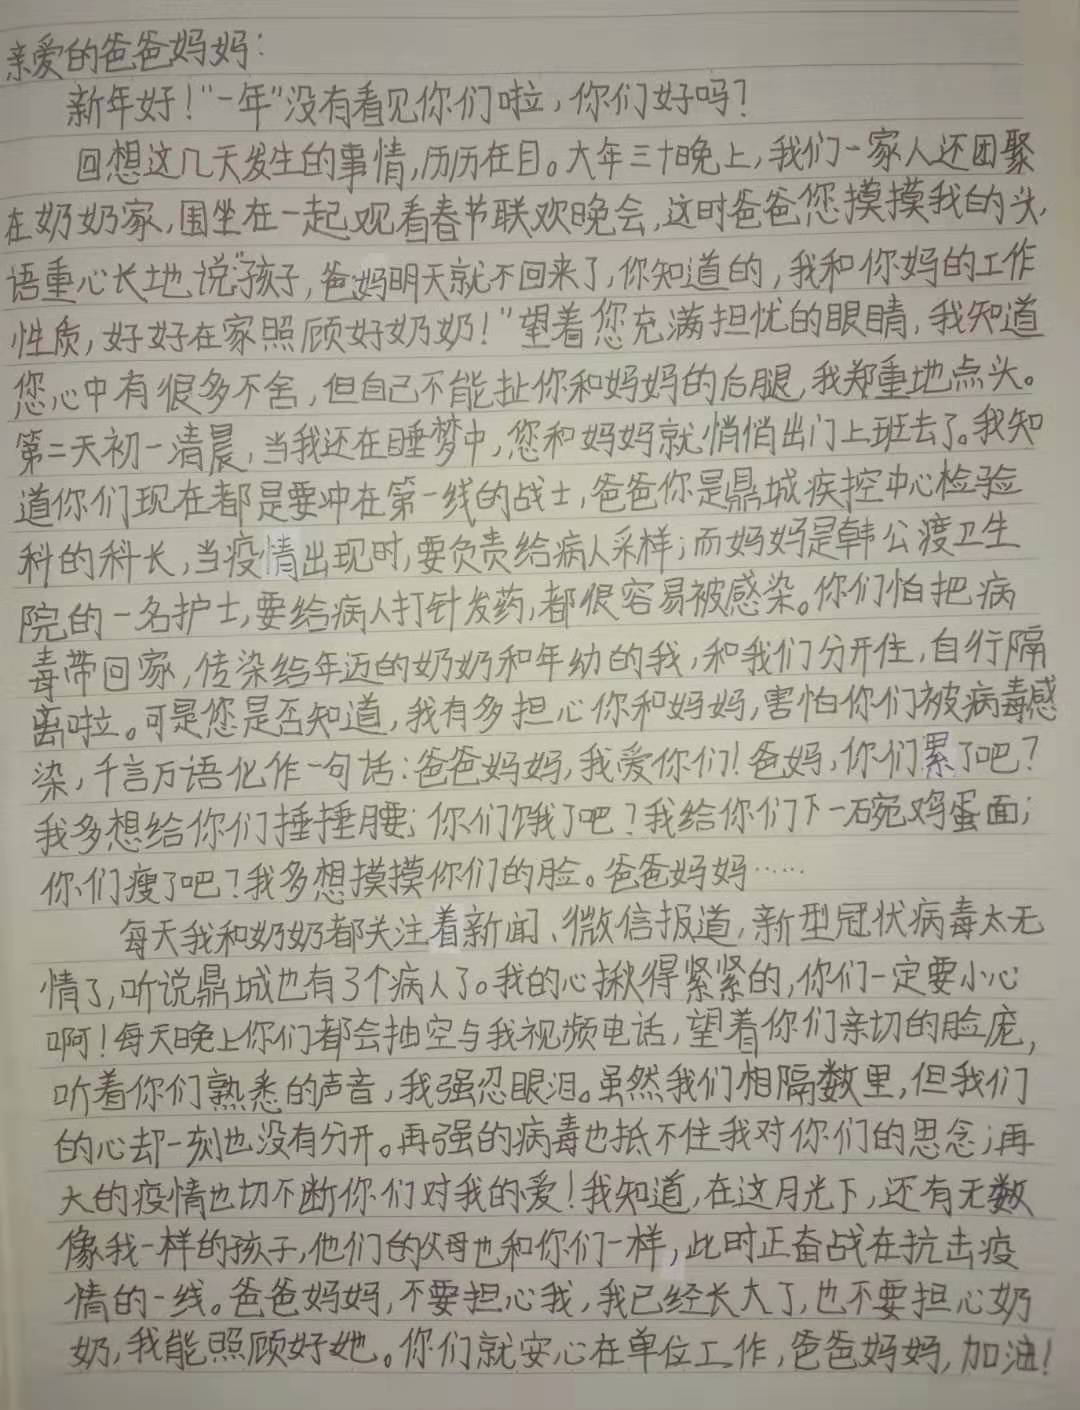 亲爱的爸爸妈妈：
新年好！"一年"没有看见你们啦，你们好吗？
回想这几天发生的事情，历历在目。大年三十晚上，我们一家人还团聚
在奶奶家，围坐在一起观看春节联欢晚会，这时爸爸您摸摸我的头，
语重心长地说"孩子，爸妈明天就不回来了，你知道的，我和你妈的工作
性质，好好在家照顾好奶奶！"望着您充满担忧的眼睛，我知道
您心中有很多不舍，但自己不能扯你和妈妈的后腿，我郑重地点头。
第二天初一清晨，当我还在睡梦中，您和妈妈就悄悄出门上班去了。我知
道你们现在都是要冲在第一线的战士，爸爸你是鼎城疾控中心检验
科的科长，当疫情出现时，要负责给病人采样；而妈妈是韩公渡卫生
院的一名护士，要给病人打针发药，都很容易被感染。你们怕把病
毒带回家，传染给年迈的奶奶和年幼的我，和我们分开住，自行隔
离啦。可是您是否知道，我有多担心你和妈妈，害怕你们被病毒感
染，千言万语化作一句话：爸爸妈妈，我爱你们！爸妈，你们累了吧？
我多想给你们捶捶腰；你们饿了吧？我给你们下一碗鸡蛋面；
你们瘦了吧？我多想摸摸你们的脸。爸爸妈妈……
每天我和奶奶都关注着新闻、微信报道，新型冠状病毒太无
情了，听说鼎城也有3个病人了。我的心揪得紧紧的，你们一定要小心
啊！每天晚上你们都会抽空与我视频电话，望着你们亲切的脸庞，
听着你们熟悉的声音，我强忍眼泪。虽然我们相隔数里，但我们
的心却一刻也没有分开。再强的病毒也抵不住我对你们的思念；再
大的疫情也切不断你们对我的爱！我知道，在这月光下，还有无数
像我一样的孩子，他们的父母也和你们一样，此时正奋战在抗击疫
情的一线。爸爸妈妈，不要担心我，我已经长大了，也不要担心奶
奶，我能照顾好她。你们就安心在单位工作，爸爸妈妈，加油！